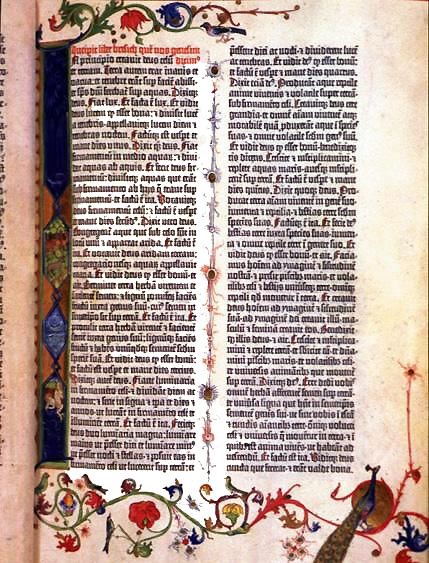 Incipit liber bresith quē nos genesim
In principio creavit deus celū dicim⁹
et terram. Terra autem erat inanis et
vacua: et tenebre erāt sup faciē abissi:
et spūs dñi ferebat sup aquas. Dixitq;
deus. Fiat lux. Et facta ē lux. Et vidit
deus lucem qđ esset bona: et divisit lucē
a tenebris: appellavitq; lucem diem et
tenebras noctem. Factūq; est vespe et
mane dies unus. Dixit q; deus. Fiat
firmamentū in medio aquaꝝ: et divi-
dat aquas ab aquis. Et fecit deus fir-
mamentū: divisitq; aquas que erāt
sub firmamento ab hijs q̄ erant sup
firmamentū: et factū ē ita. Vocavitq;
deus firmamentū celū: et factū ē vespe
et mane dies secūd⁹. Dixit vero deus.
Congregent aque que sub celo sūt in
locū unū et appareat arida. Et factū ē
ita. Et vocavit deus aridam terram:
congregacionesq; aquaꝝ appellavit
maria. Et vidit deus qđ esset bonū: et
ait. Germinet terra herbā virentem et
facientē semen: et lignū pomifeꝝ faciēs
fructū iuxta genus suū: cui⁹ semen in
semetipso sit sup terrā. Et factū ē ita. Et
protulit terra herbā virentē et facientē
semē iuxta genus suū: lignūq; faciēs
fructū et habēs unūqdq; sementē secdm
speciē suā. Et vidit deus qđ esset bonū:
et factū est vespe et mane dies tercius.
Dixitq; autē deus. Fiant luminaria
in firmamēto celi: et dividant diem ac
noctem: et sint in signa et tpa et dies et
annos: ut luceāt in firmamēto celi et
illuminent terrā. Et factū ē ita. Fecitq;
deus duo luminaria magna: luminare
maius ut pesset diei et luminare min⁹
ut pesset nocti: et stellas. et posuit eas in
firmamēto celi ut lucerent sup terrā: et
pessent diei ac nocti: et dividerent lucē
ac tenebras. Et vidit de⁹ qđ esset bonū:
et factū ē vespe et mane dies quartus.
Dixit etiā de⁹. Producant aque reptile
anime viventis et volatile super terrā:
sub firmamēto celi. Creavitq; deus cete
grandia. et omnē aīam viventē atq;
motabilē quā pduxerāt aque ī species
suas: et omne volatile secdm gen⁹ suū.
Et vidit deus qđ esset bonū: benedixitq;
eis dicens. Crescite et multiplicamini. et
replete aquas maris: avesq; multiplicent
sup terrā. Et factū ē vespe et mane
dies quintus. Dixit quoq; deus. Pro-
ducat terra aīam viventē in gene suo:
iumenta et reptilia. et bestias terre secdm
species suas. Factūq; ē ita. Et fecit de⁹
bestias terre iuxta species suas: iumen-
ta et omne reptile terre ī genere suo. Et
vidit deus qđ esset bonū: et ait. Facia-
mus hoīem ad ymaginē et similitudinē
nostrā. et presit piscib; maris: et vola-
tilib; celi et bestijs universeq; terre: omniq;
reptili qđ movetur ī terra. Et creavit
deus hoīem ad ymaginē et similitudinē
suā: ad ymaginē dei creavit illū: ma-
sculū et feminā creavit eos. Benedixitq;
illis deus: et ait. Crescite et multiplica-
mini et replete terrā: et subicite eā: et dña-
mini piscib; maris: et volatilib; celi:
et universis animātib; que moventur
sup terrā. Dixitq; de⁹. Ecce dedi vobis
omnē herbā afferentē semen sup terrā:
et universa ligna que habēt in semetipis
sementē geneis sui: ut sint vobis ī escā
et cunctis aīantib; terre: oīniq; volucri
celi et universis q̄ moventur in terra: et ī
quib; est anima vivēs: ut habeāt ad
vescendū. Et factū est ita. Viditq; deus
cuncta que fecerat: et erāt valde bona.